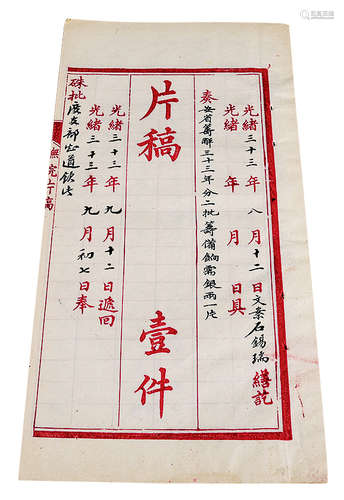 光緒三十三年八月十二日文案石錫瑞繕訖
光緒 年 月 日具
奏安省籌解三十三年分二批籌備餉需銀兩一片
片稿 壹件
光緒三十三年九月十二日遞回
光緒三十三年九月初七日奉
硃批度支部知道欽此
撫院片稿